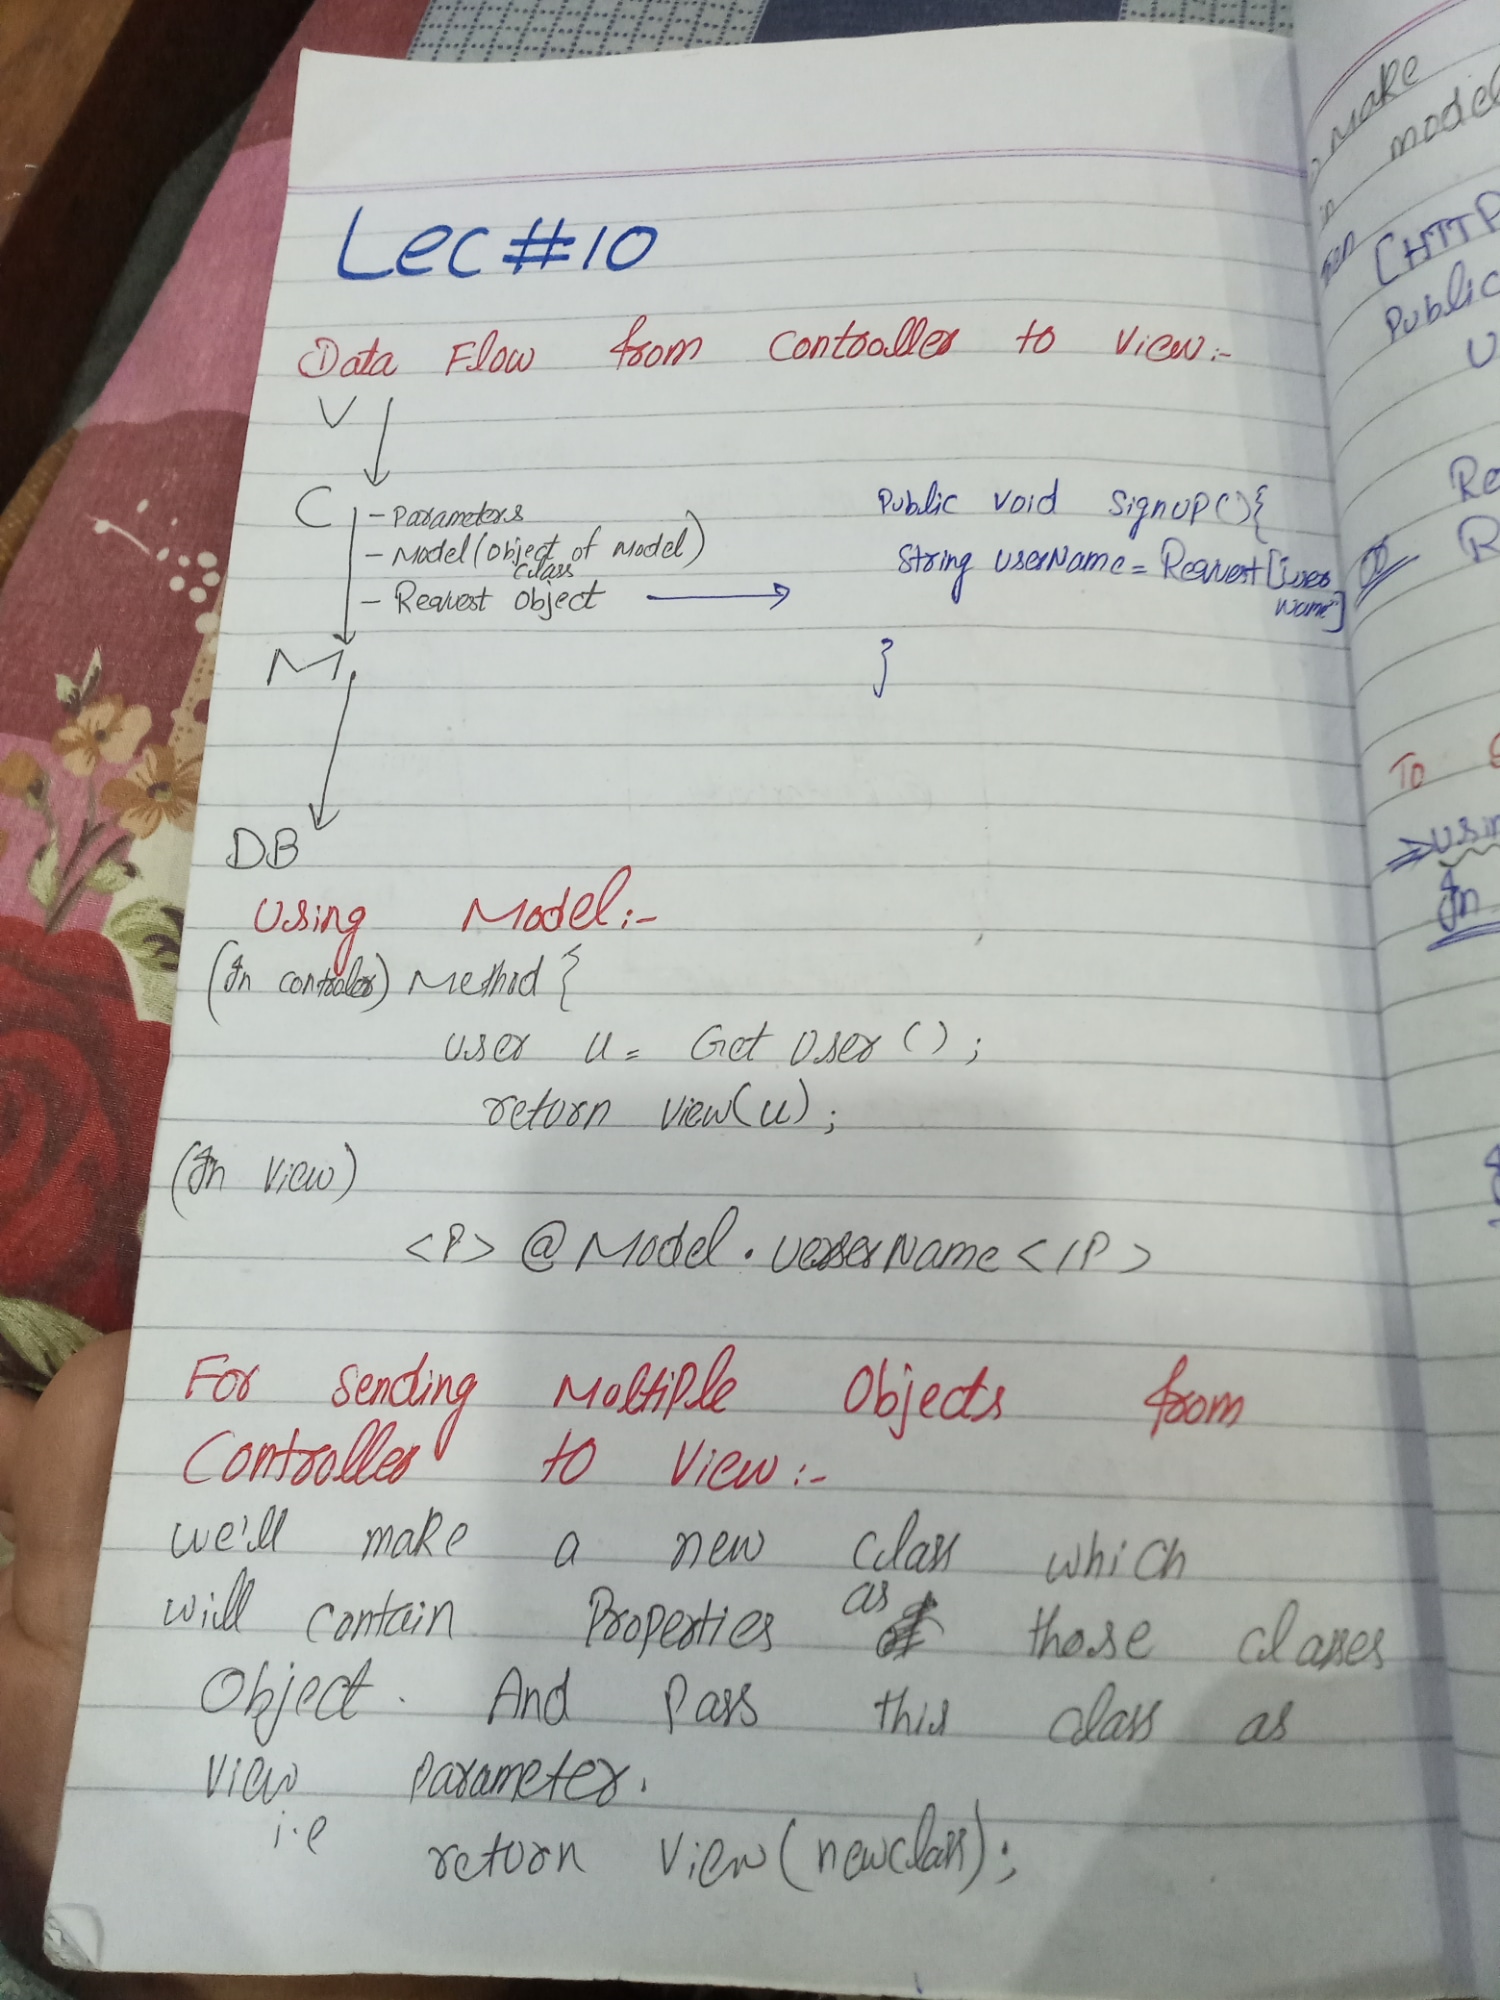 Lec #10
Data Flow from Controller to View:-
V
C
- Parameters
- Model (Object of Model)
class
- Request Object
Public void SignUP() {
String userName = Request["user
Name"]
}
M
DB
Using Model:-
(In controler) Method {
user u = Get User ();
return view(u);
(In View)
<P> @ Model . userName </P>
For Sending Multiple Objects from
Controller to View:-
we'll make a new class which
will contain Properties as those classes
Object. And Pass this class as
View Parameter.
i.e
return View (newclass);
Make
model
in
[HTTP
Public
U
Re
R
To
In